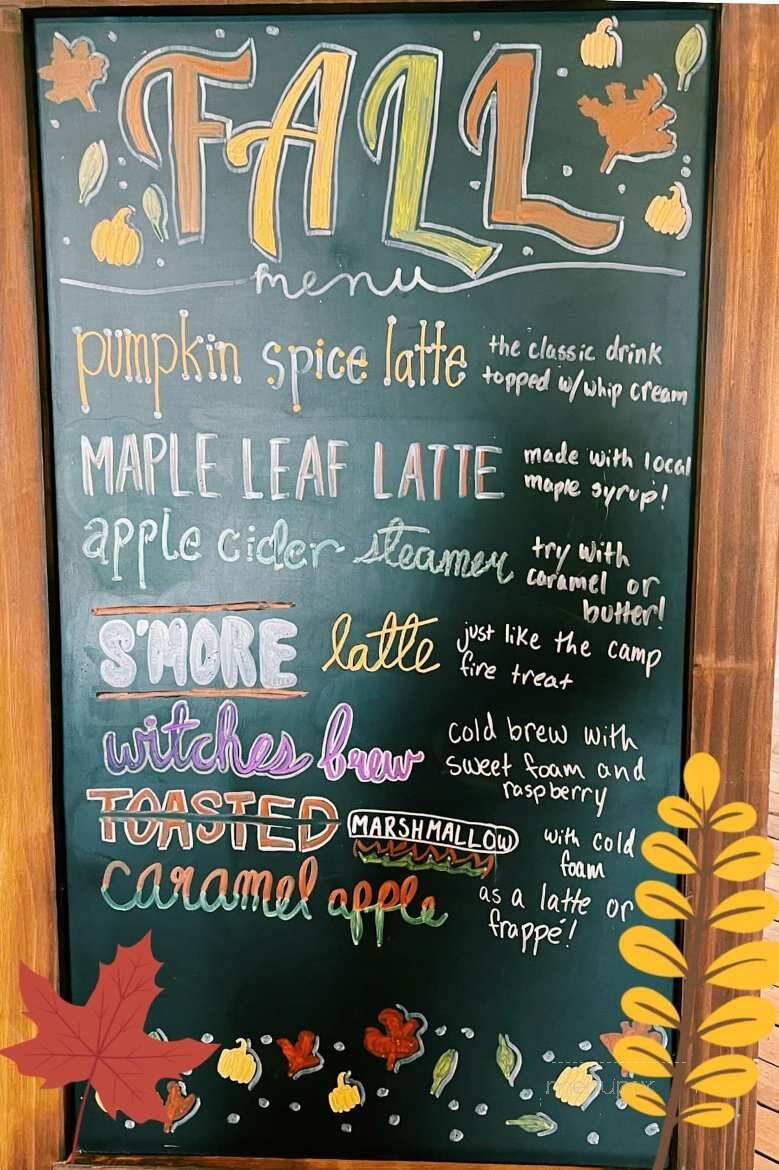 FALL
menu
pumpkin spice latte
the classic drink
topped w/whip cream
MAPLE LEAF LATTE
made with local
maple syrup!
apple cider steamer
try with
caramel or
butter!
S'MORE latte
just like the camp
fire treat
witches brew
cold brew with
sweet foam and
raspberry
TOASTED MARSHMALLOW
with cold
foam
caramel apple
as a latte or
frappé!